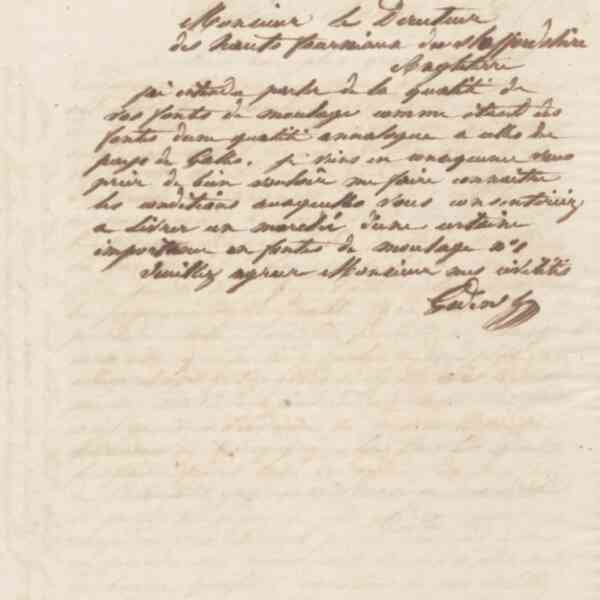 Monsieur le Directeur
des hauts fourneaux du Staffordshire
Angleterre
j'ai entendu parler de la qualité de
vos fontes de moulage comme étant des
fontes d'une qualité annalogue a celles du
pays de Galles. je viens en consequence vous
prier de bien vouloir me faire connaitre
les conditions auxquelles vous consentiriez
a livrer un marché d'une certaine
importance en fontes de moulage n°1
Veuillez agreer Monsieur mes civilités
Godin